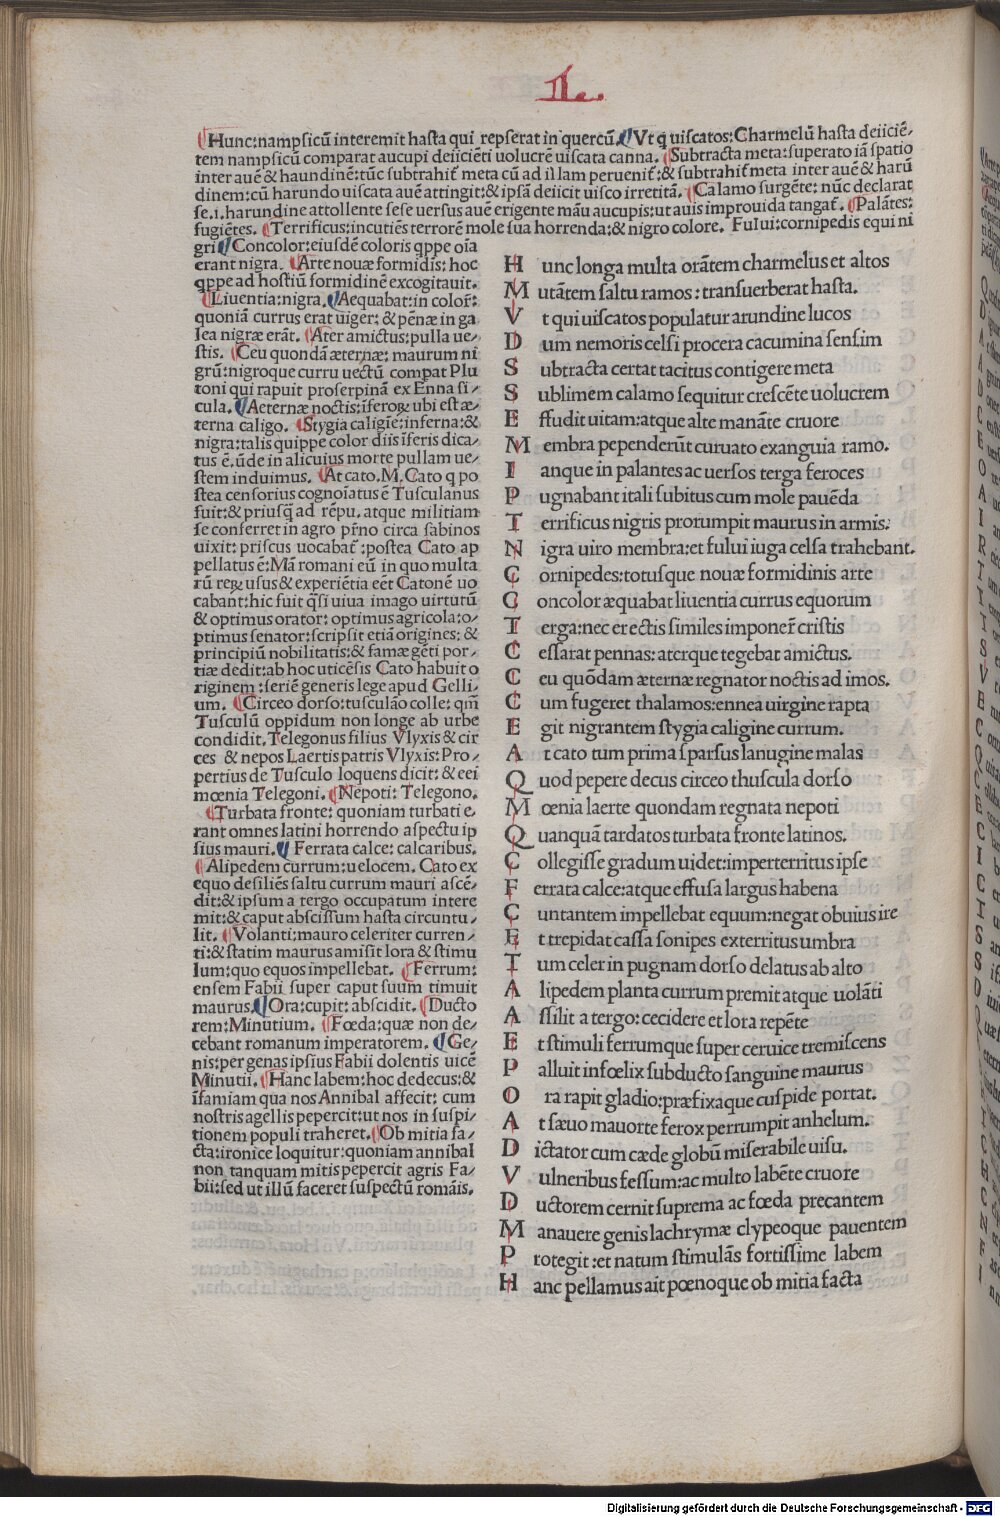 IL.
¶Hunc:nampsicũ interemit hasta qui repserat in quercũ.¶Vt q̃ uiscatos:Charmelũ hasta deiiciẽ-
tem nampsicũ comparat aucupi deiiciẽti uolucrẽ uiscata canna.¶Subtracta meta:superato iã spatio
inter auẽ & haundinẽ:tũc subtrahit̃ meta cũ ad illam peruenit̃:& subtrahit̃ meta inter auẽ & harũ
dinem:cũ harundo uiscata auẽ attingit:& ipsã deiicit uisco irretitã.¶Calamo surgẽte: nũc declarat
se.i.harundine attollente sese uersus auẽ erigente mãu aucupis:ut auis improuida tangat̃.¶Palãtes:
fugiẽtes.¶Terrificus:incutiẽs terrorẽ mole sua horrenda:& nigro colore. Fului:cornipedis equi ni
gri¶Concolor:eiusdẽ coloris qppe oĩa
erant nigra.¶Arte nouæ formidis: hoc
qppe ad hostiũ formidinẽ excogitauit.
¶Liuentia:nigra.¶Aequabat:in color̃:
quoniã currus erat uiger: & pẽnæ in ga
lea nigræ erãt.¶Ater amictus:pulla ue-
stis.¶Ceu quondã æternæ: maurum ni
grũ:nigroque curru uectũ compat Plu
toni qui rapuit proserpinã ex Enna si-
cula.¶Aeternæ noctis:ĩferoꝝ ubi est æ-
terna caligo.¶Stygia caligĩe:inferna:&
nigra:talis quippe color diis ĩferis dica-
tus ẽ.ũde in alicuius morte pullam ue-
stem induimus.¶At cato.M.Cato q po
stea censorius cognoĩatus ẽ Tusculanus
fuit:& priusq̃ ad rẽpu.atque militiam
se conferret in agro pr̃no circa sabinos
uixit: priscus uocabat̃ :postea Cato ap
pellatus ẽ:Mã romani eũ in quo multa
rũ reꝝ usus & experiẽtia eẽt Catonẽ uo
cabant:hic fuit q̃si uiua imago uirtutũ
& optimus orator: optimus agricola:o-
ptimus senator:scripsit etiã origines: &
principiũ nobilitatis:& famæ gẽti por-
tiæ dedit:ab hoc uticẽsis Cato habuit o
riginem :seriẽ generis lege apud Gelli-
um.¶Circeo dorso:tusculão colle: qm̃
Tusculũ oppidum non longe ab urbe
condidit.Telegonus filius Vlyxis & cir
ces & nepos Laertis patris Vlyxis:Pro-
pertius de Tusculo loquens dicit: & eei
mœnia Telegoni.¶Nepoti: Telegono.
¶Turbata fronte: quoniam turbati e-
rant omnes latini horrendo aspectu ip
sius mauri.¶Ferrata calce: calcaribus.
¶Alipedem currum:uelocem. Cato ex
equo desiliẽs saltu currum mauri ascẽ-
dit:& ipsum a tergo occupatum intere
mit:& caput abscissum hasta circuntu-
lit.¶Volanti:mauro celeriter curren-
ti:& statim maurus amisit lora & stimu
lum:quo equos impellebat.¶Ferrum:
ensem Fabii super caput suum timuit
maurus.¶Ora:cupit: abscidit.¶Ducto
rem:Minutium.¶Fœda:quæ non de-
cebant romanum imperatorem.¶Ge-
nis:per genas ipsius Fabii dolentis uicẽ
Minutii.¶Hanc labem:hoc dedecus:&
ĩfamiam qua nos Annibal affecit: cum
nostris agellis pepercit:ut nos in suspi-
tionem populi traheret.¶Ob mitia fa-
cta:ironice loquitur:quoniam annibal
non tanquam mitis pepercit agris Fa-
bii:sed ut illũ faceret suspectũ romãis.
H unc longa multa orãtem charmelus et altos
M utãtem saltu ramos : transuerberat hasta.
V t qui uiscatos populatur arundine lucos
D um nemoris celsi procera cacumina sensim
S ubtracta certat tacitus contigere meta
S ublimem calamo sequitur crescẽte uolucrem
E ffudit uitam:atque alte manãte cruore
M embra pependerũt curuato exanguia ramo.
I anque in palantes ac uersos terga feroces
P ugnabant itali subitus cum mole pauẽda
T errificus nigris prorumpit maurus in armis:
N igra uiro membra:et fului iuga celsa trahebant.
C ornipedes:totusque nouæ formidinis arte
C oncolor æquabat liuentia currus equorum
T erga:nec erectis similes imponer̃ cristis
C essarat pennas: aterque tegebat amictus.
C eu quõdam æternæ regnator noctis ad imos.
C um fugeret thalamos:ennea uirgine rapta
E git nigrantem stygia caligine currum.
A t cato tum prima sparsus lanugine malas
Q uod pepere decus circeo thuscula dorso
M œnia laerte quondam regnata nepoti
Q uanquã tardatos turbata fronte latinos.
C ollegisse gradum uidet:imperterritus ipse
F errata calce:atque effusa largus habena
C untantem impellebat equum:negat obuius ire
E t trepidat cassa sonipes exterritus umbra
T um celer in pugnam dorso delatus ab alto
A lipedem planta currum premit atque uolãti
A ssilit a tergo: cecidere et lora repẽte
E t stimuli ferrumque super ceruice tremiscens
P alluit infœlix subducto sanguine maurus
O ra rapit gladio:præfixaque cuspide portat.
A t sæuo mauorte ferox perrumpit anhelum.
D ictator cum cæde globũ miserabile uisu.
V ulneribus fessum:ac multo labẽte cruore
D uctorem cernit suprema ac fœda precantem
M anauere genis lachrymæ clypeoque pauentem
P rotegit :et natum stimulãs fortissime labem
H anc pellamus ait pœnoque ob mitia facta
Digitalisierung gefördert durch die Deutsche Forschungsgemeinschaft - DFG